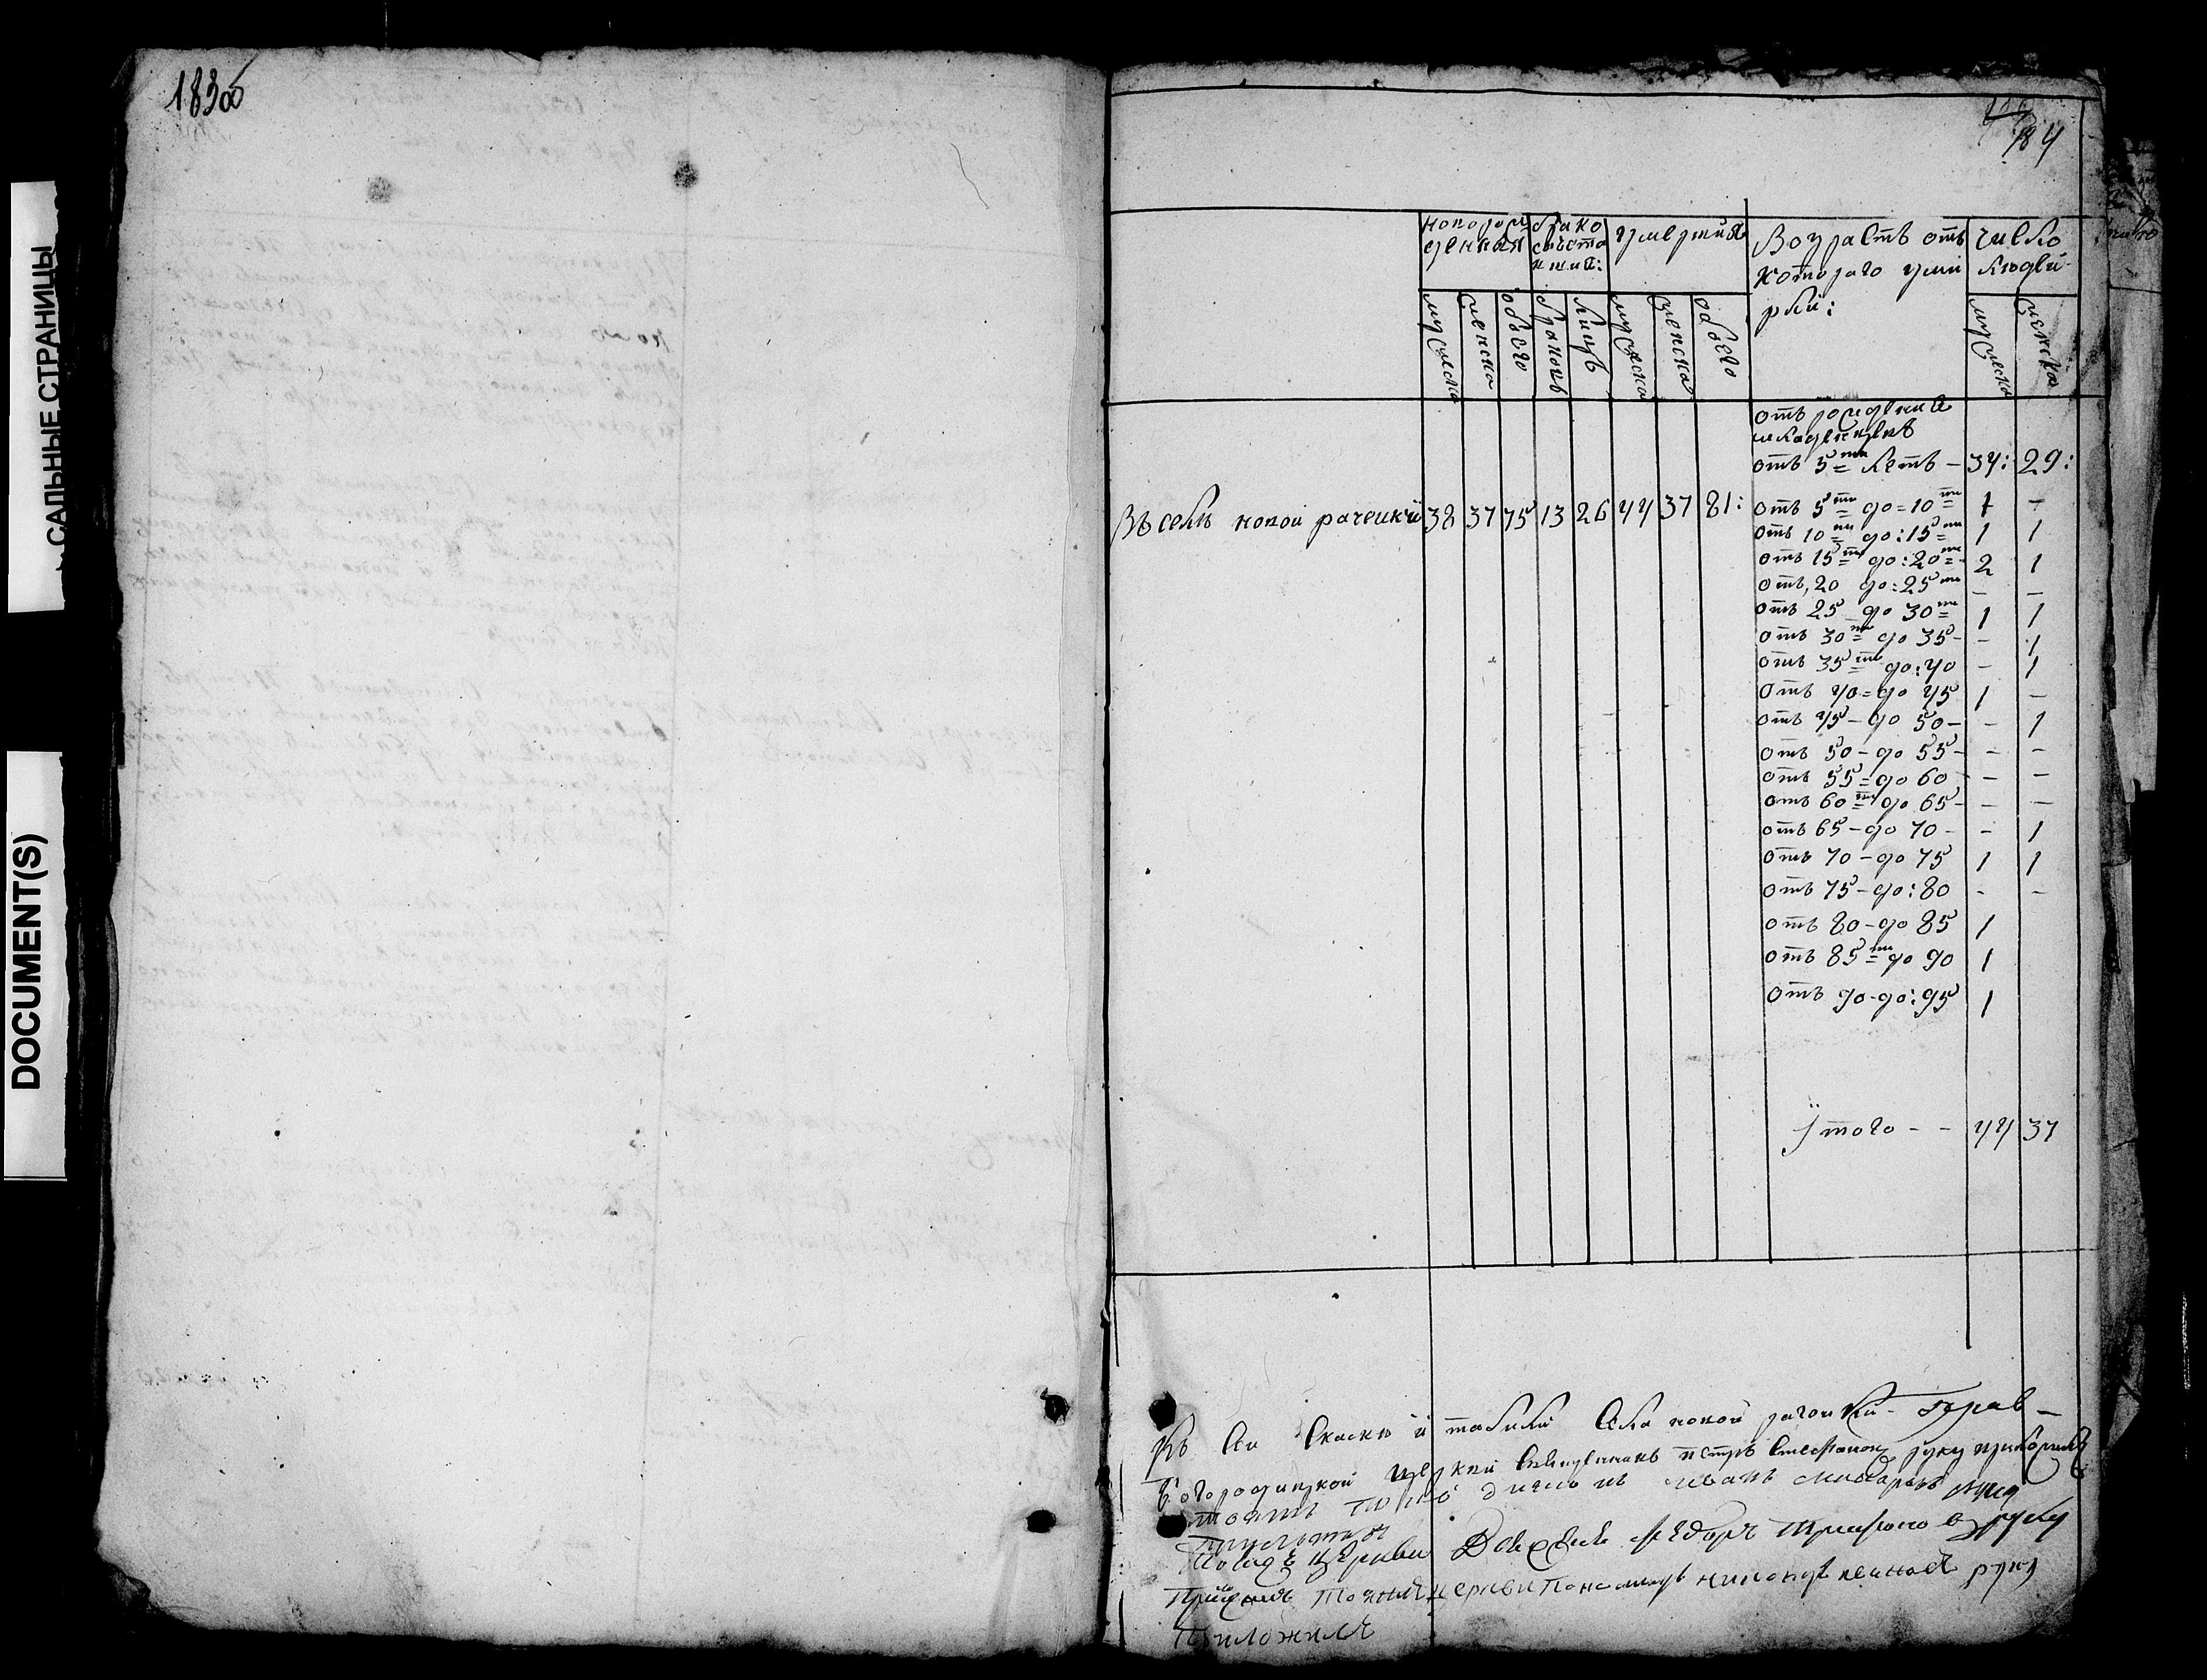 183об
САЛЬНЫЕ СТРАНИЦЫ
DOCUMENT(S)
184
новорож
денныя
брако
сочета
умершия
Возрастъ отъ
котораго уми
рли:
число
людей
мужеска
женска
обоего
браковъ
лицъ
мужеска
женска
обоего
мужеска
женска
отъ рождениа
младенцевъ
отъ 5ти летъ - 34: 29:
Въ селе новой рачейки 38 37 75 13 26 44 37 81:
отъ 5ти до = 10ти 1 -
отъ 10ти до: 15ти 1 1
отъ 15ти до: 20ти 2 1
отъ, 20 до: 25ти - -
отъ 25 до 30ти 1 1
отъ 30ти до 35 - - 1
отъ 35ти до: 40 - 1
отъ 40 = до 45 1 -
отъ 45 - до 50 - - 1
отъ 50 - до 55 - - -
отъ 55 = до 60 - -
отъ 60ти до 65 - - -
отъ 65 - до 70 - - 1
отъ 70 - до 75 1 1
отъ 75 - до: 80 - -
отъ 80 - до 85 1
отъ 85ти до 90 1
отъ 90 - до: 95 1
Итого - - 44 37
Къ сей скаске и табели села новой рачейки
Богородицкой церкви священникъ петръ Стефановъ руку приложилъ
тоятъ диаконъ иванъ руку
приложилъ
церкви федоръ трифоновъ руку
приложилъ тояжъ церкви пономарь руку
приложилъ